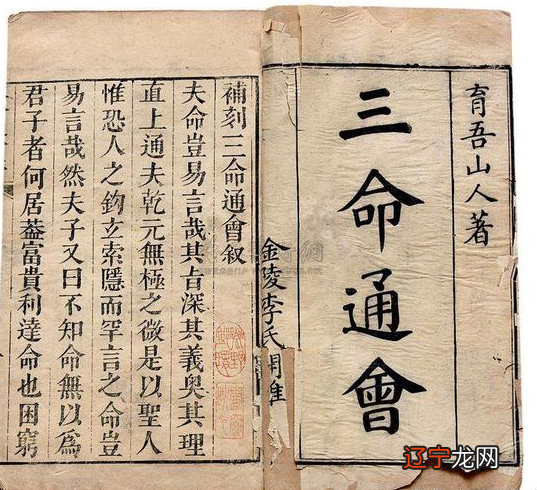 育吾山人著
三命通會
金陵李氏
補刻三命通會叙
夫命豈易言哉其旨深其義奧其理
直上通夫乾元無極之微是以聖人
惟恐人之鉤玄索隱而罕言之命豈
易言哉然夫子又曰不知命無以爲
君子者何居葢富貴利達命也困窮
辽宁龙网